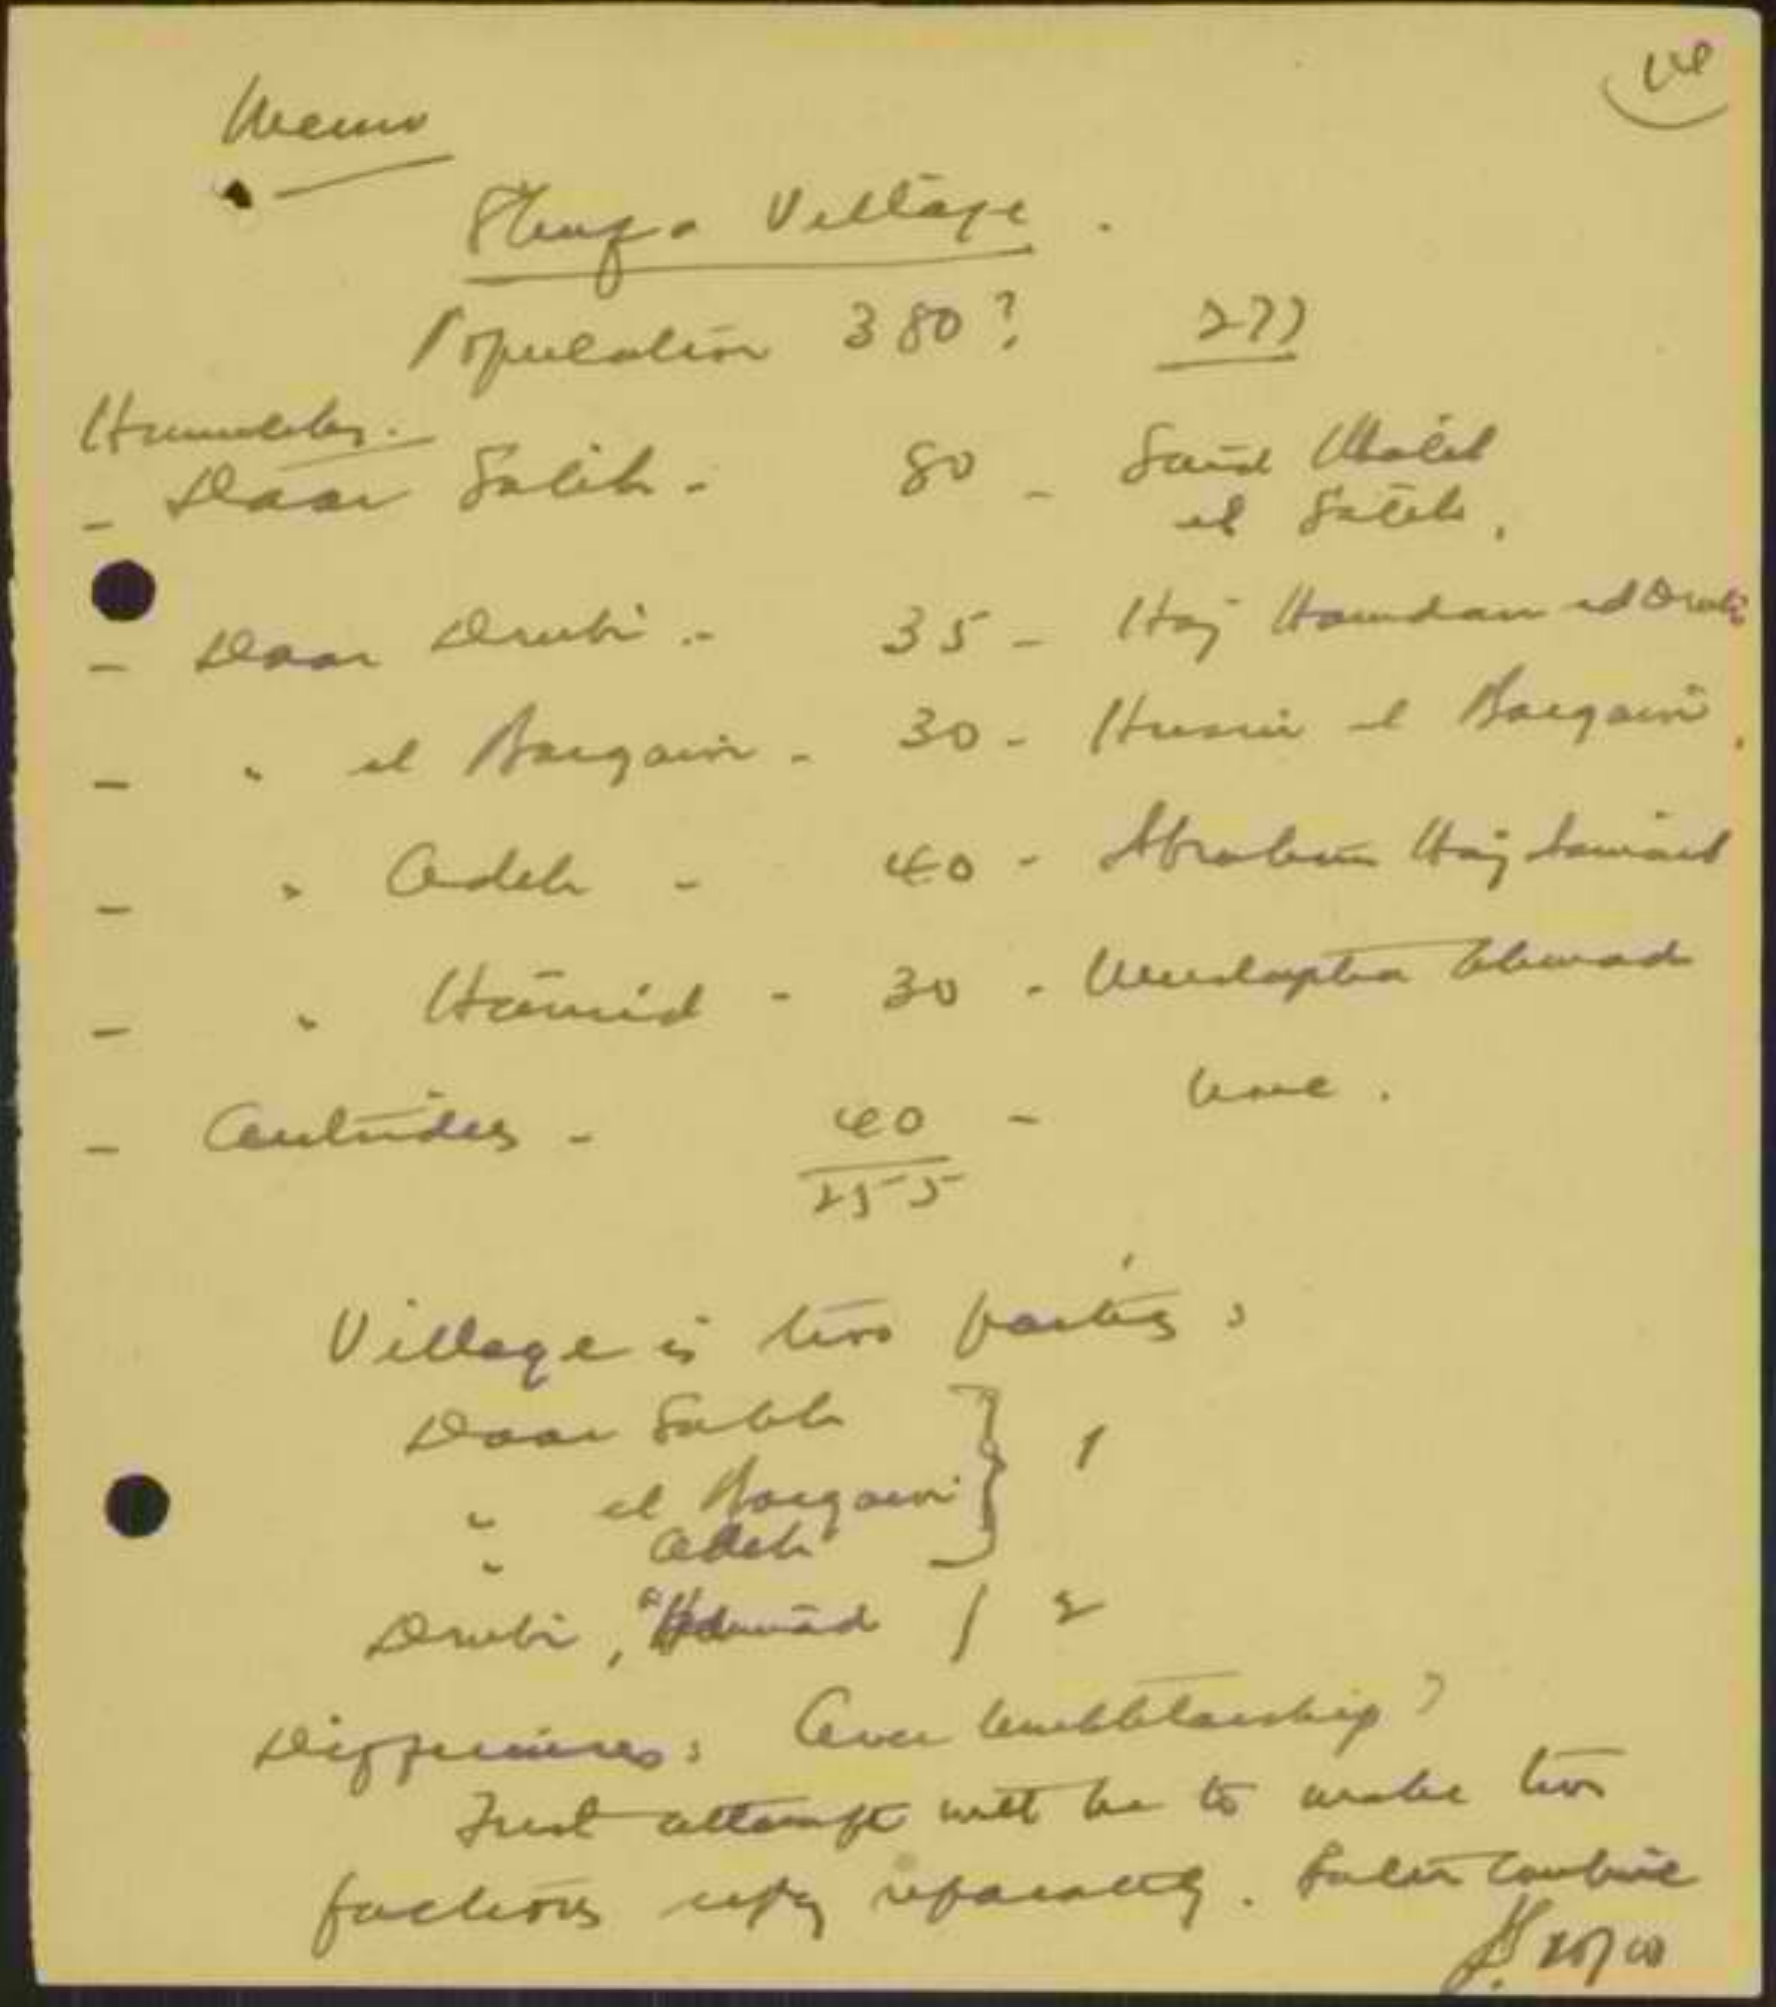 Memo
Village.
Population 380? 277
Hamulehs.
- Daar Salih - 80 - Said
el Saleh.
- Daar Drubi - 35 - Haj Hamdan ed Drubi
- " el Bargawi - 30 - Husein el Bargawi.
- " Odeh - 40 - Ibrahim Haj
- " Hamid - 30 - Mustapha Ahmad
- Outsiders - 40 - None.
255
Village is two parties:
Daar Saleh } 1
" el Bargawi
" Odeh
Drubi, 2
Differences: Over Mukhtarship?
First attempt will be to make two
factions separately. Later combine